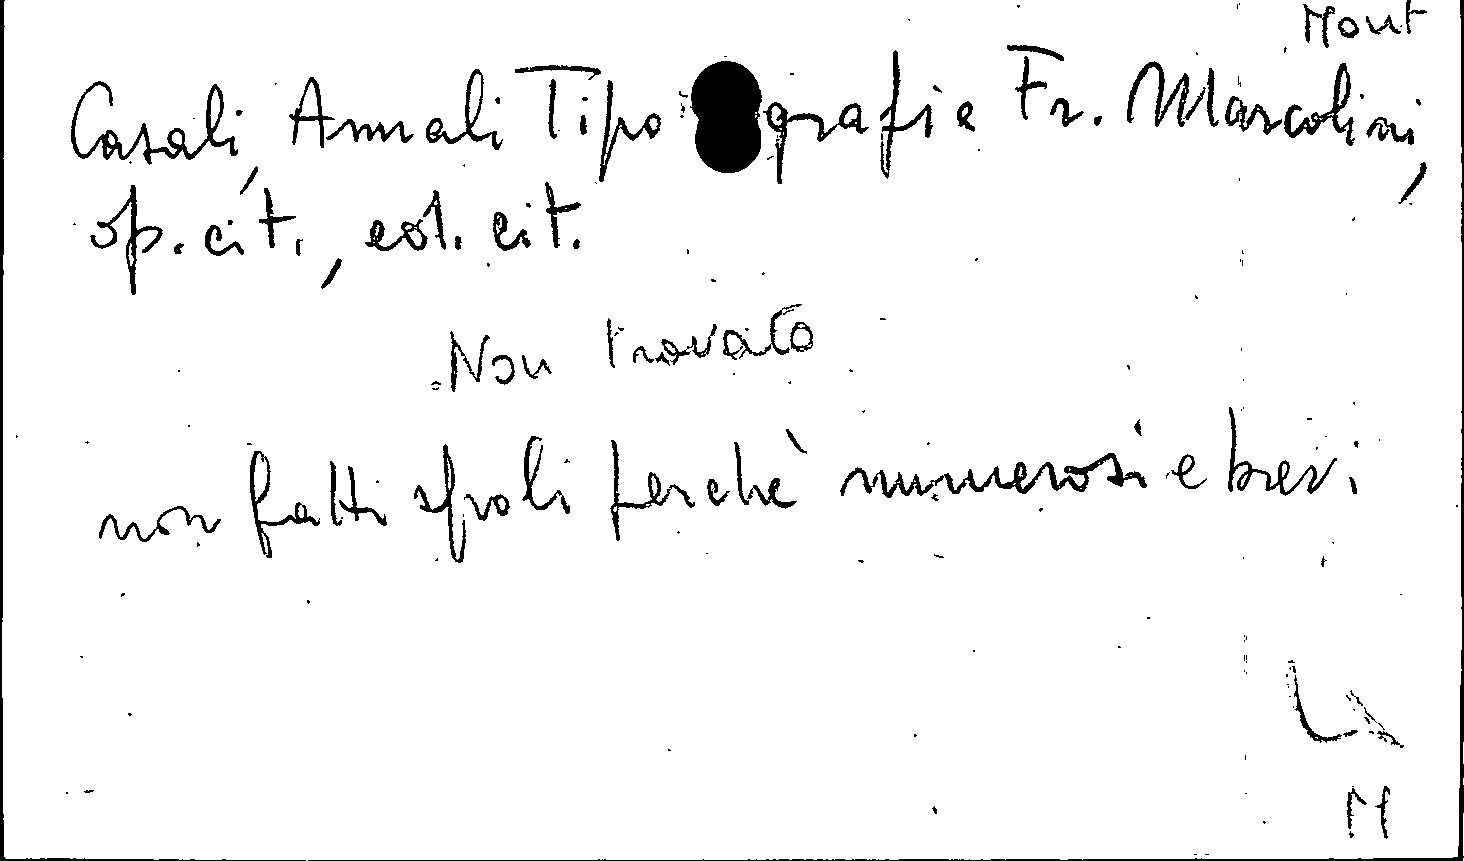 Mont
Casali, Annali Tipografia Fr. Marcolini,
op. cit., col. cit.
Non trovato
non fatti spoli perchè numerosi e brevi
M